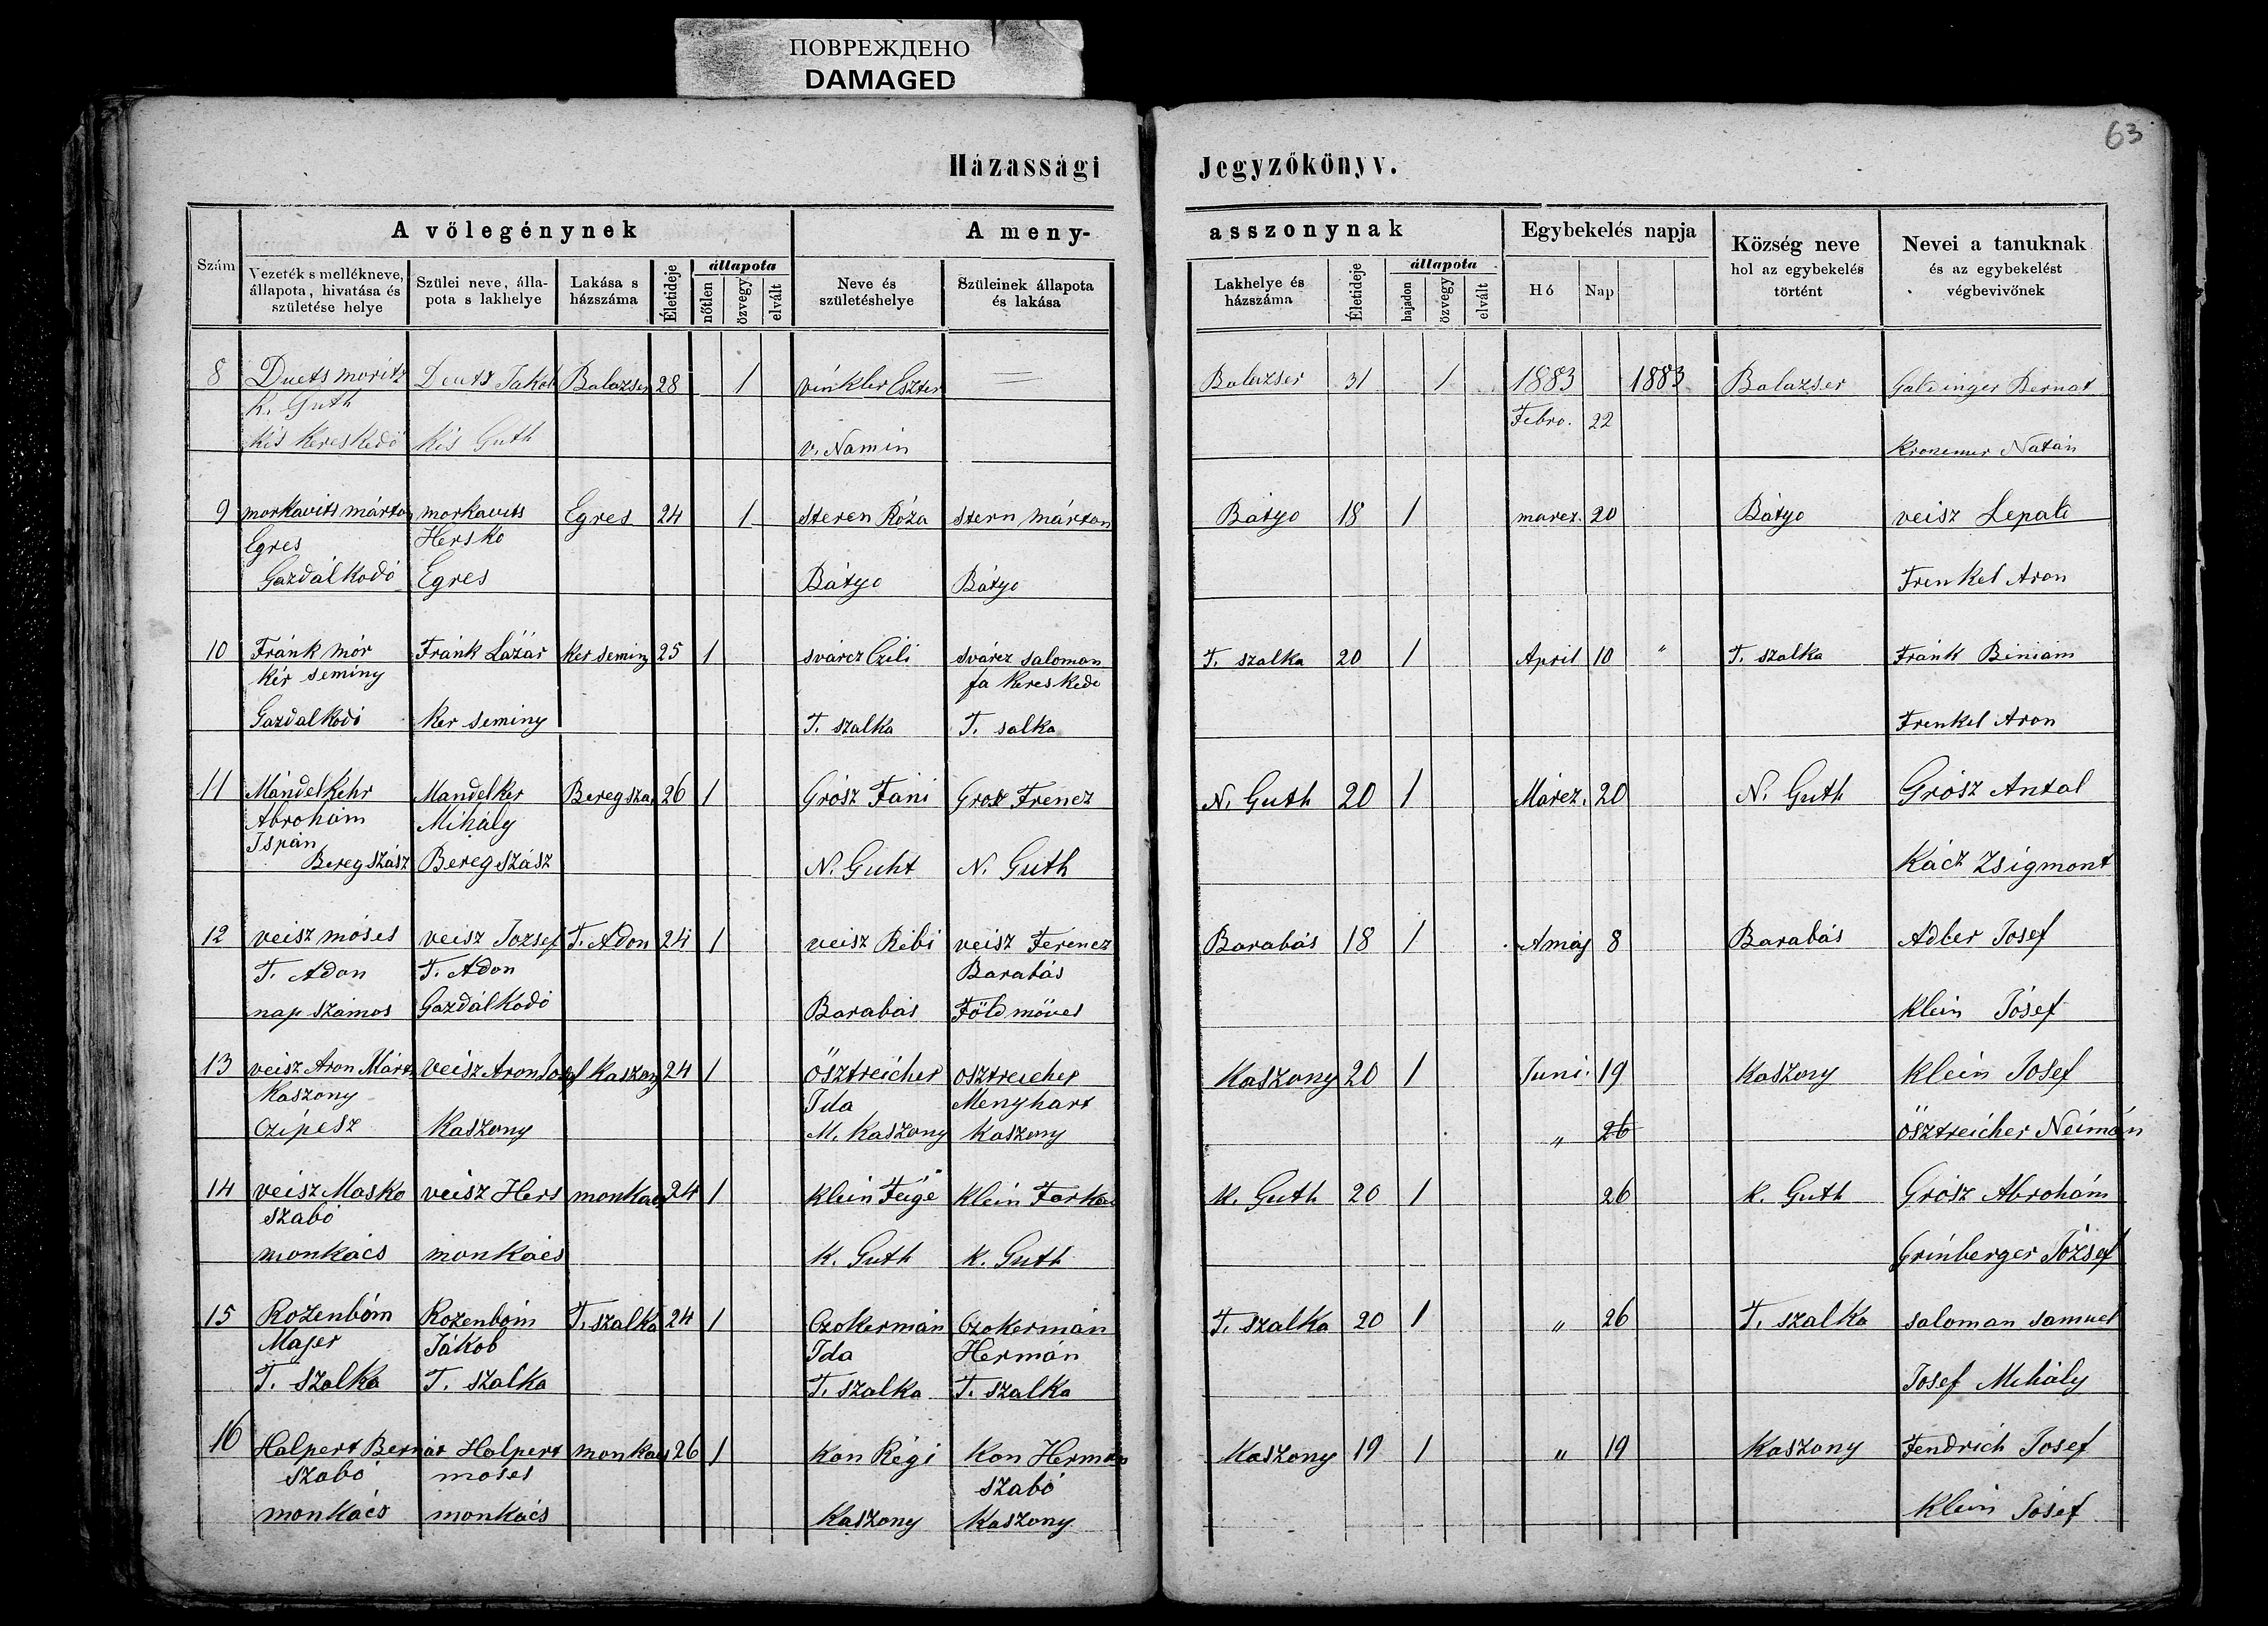 ПОВРЕЖДЕНО
DAMAGED
63
Házassági Jegyzőkönyv.
A vőlegénynek A meny- asszonynak Egybekelés napja Község neve Nevei a tanuknak
hol az egybekelés és az egybekelést
történt végbevivőnek
Szám Vezeték s mellékneve, Szülei neve, álla- Lakása s Életideje állapota Neve és Szüleinek állapota Lakhelye és Életideje állapota Hó Nap
állapota, hivatása és pota s lakhelye házszáma nőtlen özvegy elvált születéshelye és lakása házszáma hajadon özvegy elvált
születése helye
8 Duets moritz Deuts Jakob Balazser 28 1 vinkler Eszter — Balazser 31 1 1883 1883 Balazser Galdinger Bernat
K. Guth Febro. 22
Kis Kereskedő Kis Guth v. Namin Kronemer Natán
9 morkavits márton morkavits Egres 24 1 steren Róza stern márton Bátyo 18 1 marcz. 20 Bátyo veisz Lepali
Egres Hersko
Gazdálkodó Egres Bátyo Bátyo Frenkel Aron
10 Fránk mór Fránk Lázár Ker seminy 25 1 svárcz Czili svárcz saloman T. szalka 20 1 April 10 " T. szalka Fránk Biniam
Kér seminy fa Kereskede
Gazdalkodó Ker seminy T. szalka T. salka Frenkel Aron
11 Mándelkehr Mandelker Beregsza 26 1 Grósz Fáni Grosz Frencz N. Guth 20 1 Márcz. 20 N. Guth Grósz Antal
Abrohám Mihály
Ispán
Beregszász Beregszász N. Guht N. Guth Kácz Zsigmont
12 veisz móses veisz Jozsef T. Adon 24 1 veisz Rébi veisz Ferencz Barabás 18 1 Amáj 8 Barabás Adler Josef
T. Adon T. Adon Barabás
nap számos Gazdálkodó Barabás Földmöves Klein Jósef
13 veisz Aron Márt. veisz Aron Josef Kaszony 24 1 Ösztreicher osztreicher Kaszony 20 1 Juni. 19 Kaszony Klein Josef
Kaszony Ida Menyhart
Czipész Kaszony M. Kaszony Kaszony " 26 Ösztreicher Neimán
14 veisz Mosko veisz Hers monkacs 24 1 Klein Feigé Klein Farkas K. Guth 20 1 26 K. Guth Grósz Abrohám
szabó
monkács monkács K. Guth K. Guth Grinberger József
15 Rozenbóm Rozenbóm T. szalka 24 1 Czokermán Czokermán T. szalka 20 1 " 26 T. szalka saloman samuel
Majer Jákob Ida Hermán
T. szalka T. szalka T. szalka T. szalka Josef Mihály
16 Halpert Bernát Halpert monkacs 26 1 Kon Régi Kon Herman Kaszony 19 1 " 19 Kaszony Fendrich Josef
szabó moses szabó
monkács monkács Kaszony Kaszony Klein Jósef